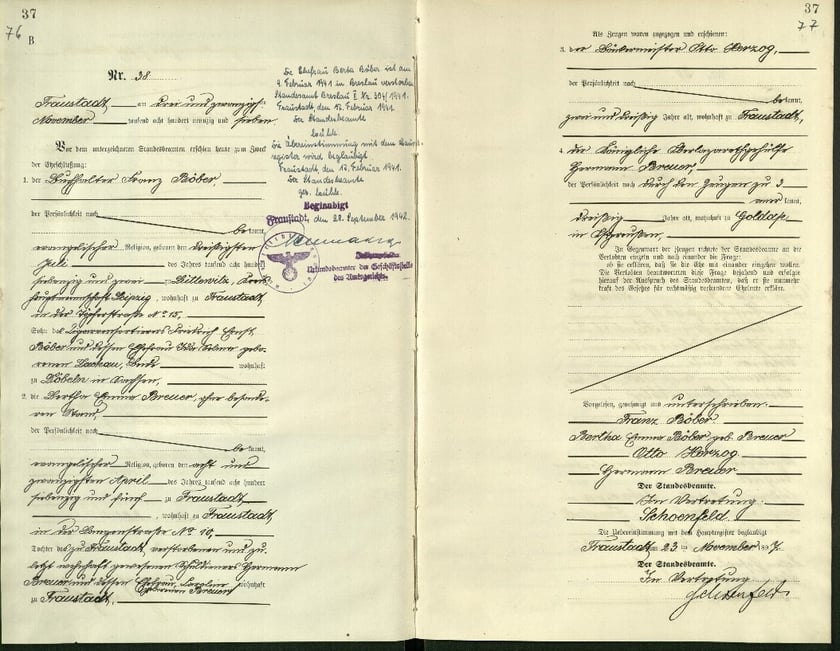 37
76
B
Nr. 38
Fraustadt, am drei und zwanzigsten
November tausend acht hundert neunzig und sieben
Vor dem unterzeichneten Standesbeamten erschienen heute zum Zweck
der Eheschließung:
1. der Buchhalter Franz Böber,
der Persönlichkeit nach
be kannt,
evangelischer Religion, geboren den dreißigsten
Juli des Jahres tausend acht hundert
siebenzig und zwei zu
hauptmannschaft Leipzig, wohnhaft zu Fraustadt,
in der No 15,
Sohn des Friedrich Ernst
Böber und dessen Ehefrau
wohnhaft
zu Döbeln in Sachsen,
2. die Bertha Emma Breuer, ohne besonde-
ren Stand,
der Persönlichkeit nach
be kannt,
evangelischer Religion, geboren den acht und
zwanzigsten April des Jahres tausend acht hundert
siebenzig und fünf zu Fraustadt,
, wohnhaft zu Fraustadt,
in der No 10,
Tochter des zu Fraustadt, verstorbenen und zu-
letzt wohnhaft gewesenen Hermann
Breuer und dessen Ehefrau, Caroline
wohnhaft
zu Fraustadt,
Die Ehefrau Berta Böber ist am
4. Februar 1941 in Breslau verstorben
Standesamt Breslau I Nr. 304/1941.
Fraustadt, den 12. Februar 1941.
Der Standesbeamte
Die Übereinstimmung mit dem Haupt-
register wird beglaubigt
Fraustadt, den 12. Februar 1941.
Der Standesbeamte
gez.
Beglaubigt
Fraustadt, den 28. September 1942.
Urkundsbeamter der Geschäftsstelle
des Amtsgerichts.
37
77
Als Zeugen waren zugezogen und erschienen:
3. der Bäckermeister Otto Herzog,
der Persönlichkeit nach
be kannt,
zwei und dreißig Jahre alt, wohnhaft zu Fraustadt,
4. der Königliche
Hermann Breuer,
der Persönlichkeit nach durch den Zeugen zu 3
aner kannt,
dreißig Jahre alt, wohnhaft zu Goldap
in Ostpreußen.
In Gegenwart der Zeugen richtete der Standesbeamte an die
Verlobten einzeln und nach einander die Frage:
ob sie erklären, daß sie die Ehe mit einander eingehen wollen.
Die Verlobten beantworteten diese Frage bejahend und erfolgte
hierauf der Ausspruch des Standesbeamten, daß er sie nunmehr
kraft des Gesetzes für rechtmäßig verbundene Eheleute erkläre.
Vorgelesen, genehmigt und unterschrieben.
Franz Böber
Bertha Emma Böber geb. Breuer
Otto Herzog
Hermann Breuer
Der Standesbeamte.
In Vertretung.
Schoenfeld.
Die Uebereinstimmung mit dem Hauptregister beglaubigt
Fraustadt, am 23 ten November 1897.
Der Standesbeamte.
In Vertretung
Schoenfeld